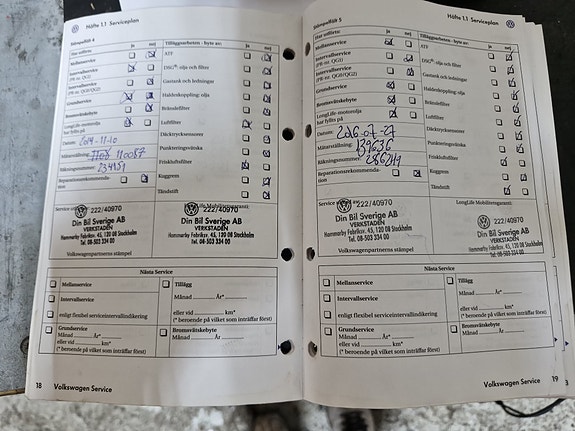 Häfte 1.1 Serviceplan
Stämpelfält 4
Har utförts: ja nej
Mellanservice
Intervallservice
(PR-nr. QG1)
Intervallservice
(PR-nr. QG0/QG2)
Grundservice
Bromsvätskebyte
LongLife-motorolja
har fyllts på
Datum: 2014-11-10
Mätarställning:
Räkningsnummer:
Reparationsrekommenda-
tion
Tilläggsarbeten - byte av: ja nej
ATF
DSG®: olja och filter
Gastank och ledningar
Haldexkoppling: olja
Bränslefilter
Luftfilter
Däcktryckssensorer
Punkteringsvätska
Friskluftsfilter
Kuggrem
Tändstift
LongLife Mobilitetsgaranti:
222/40970
Din Bil Sverige AB
VERKSTADEN
Hammarby Fabriksv. 45, 120 08 Stockholm
Tel. 08-503 334 00
222/40970
Din Bil Sverige AB
VERKSTADEN
Hammarby Fabriksv. 45, 120 08 Stockholm
Tel. 08-503 334 00
Volkswagenpartnerns stämpel
Nästa Service
Mellanservice
Intervallservice
enligt flexibel serviceintervallindikering
Grundservice
Månad År*
eller vid km*
(* beroende på vilket som inträffar först)
Tillägg
Månad År*
eller vid km*
(* beroende på vilket som inträffar först)
Bromsvätskebyte
Månad År
18 Volkswagen Service
Häfte 1.1 Serviceplan
Stämpelfält 5
Har utförts: ja nej
Mellanservice
Intervallservice
(PR-nr. QG1)
Intervallservice
(PR-nr. QG0/QG2)
Grundservice
Bromsvätskebyte
LongLife-motorolja
har fyllts på
Datum: 2016-07-27
Mätarställning: 139636
Räkningsnummer:
Reparationsrekommenda-
tion
Tilläggsarbeten - byte av: ja nej
ATF
DSG®: olja och filter
Gastank och ledningar
Haldexkoppling: olja
Bränslefilter
Luftfilter
Däcktryckssensorer
Punkteringsvätska
Friskluftsfilter
Kuggrem
Tändstift
LongLife Mobilitetsgaranti:
222/40970
Din Bil Sverige AB
VERKSTADEN
Hammarby Fabriksv. 45, 120 08 Stockholm
Tel. 08-503 334 00
222/40970
Din Bil Sverige AB
VERKSTADEN
Hammarby Fabriksv. 45, 120 08 Stockholm
Tel. 08-503 334 00
Volkswagenpartnerns stämpel
Nästa Service
Mellanservice
Intervallservice
enligt flexibel serviceintervallindikering
Grundservice
Månad År*
eller vid km*
(* beroende på vilket som inträffar först)
Tillägg
Månad År*
eller vid km*
(* beroende på vilket som inträffar först)
Bromsvätskebyte
Månad År
Volkswagen Service 19